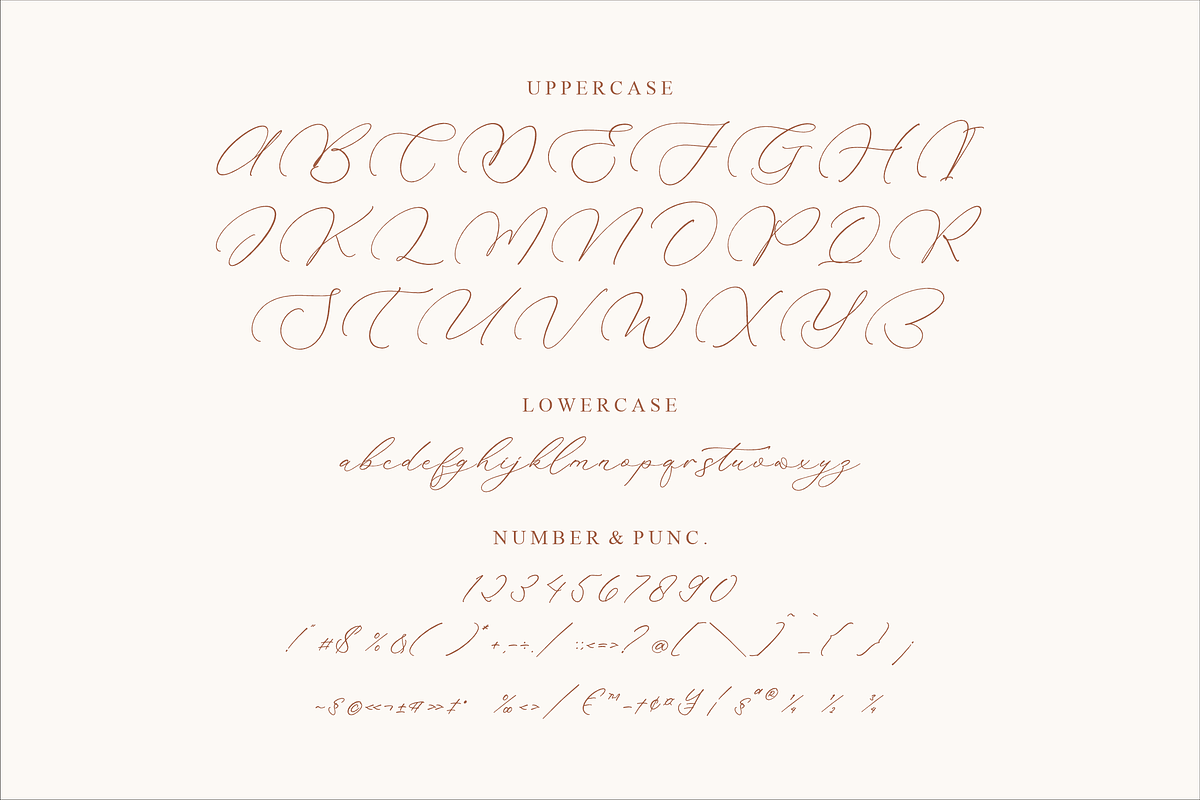 UPPERCASE
A B C D E F G H I
J K L M N O P Q R
S T U V W X Y Z
LOWERCASE
abcdefghijklmnopqrstuvwxyz
NUMBER & PUNC.
1234567890
!" #$ %&( )* +,-÷./ :;<=>? @[ \ ]^ `_{ } ¡
~§©«¬±¶»‡• ‰<> / €™–†¢¤¥ ¦ §ª® ¼ ½ ¾